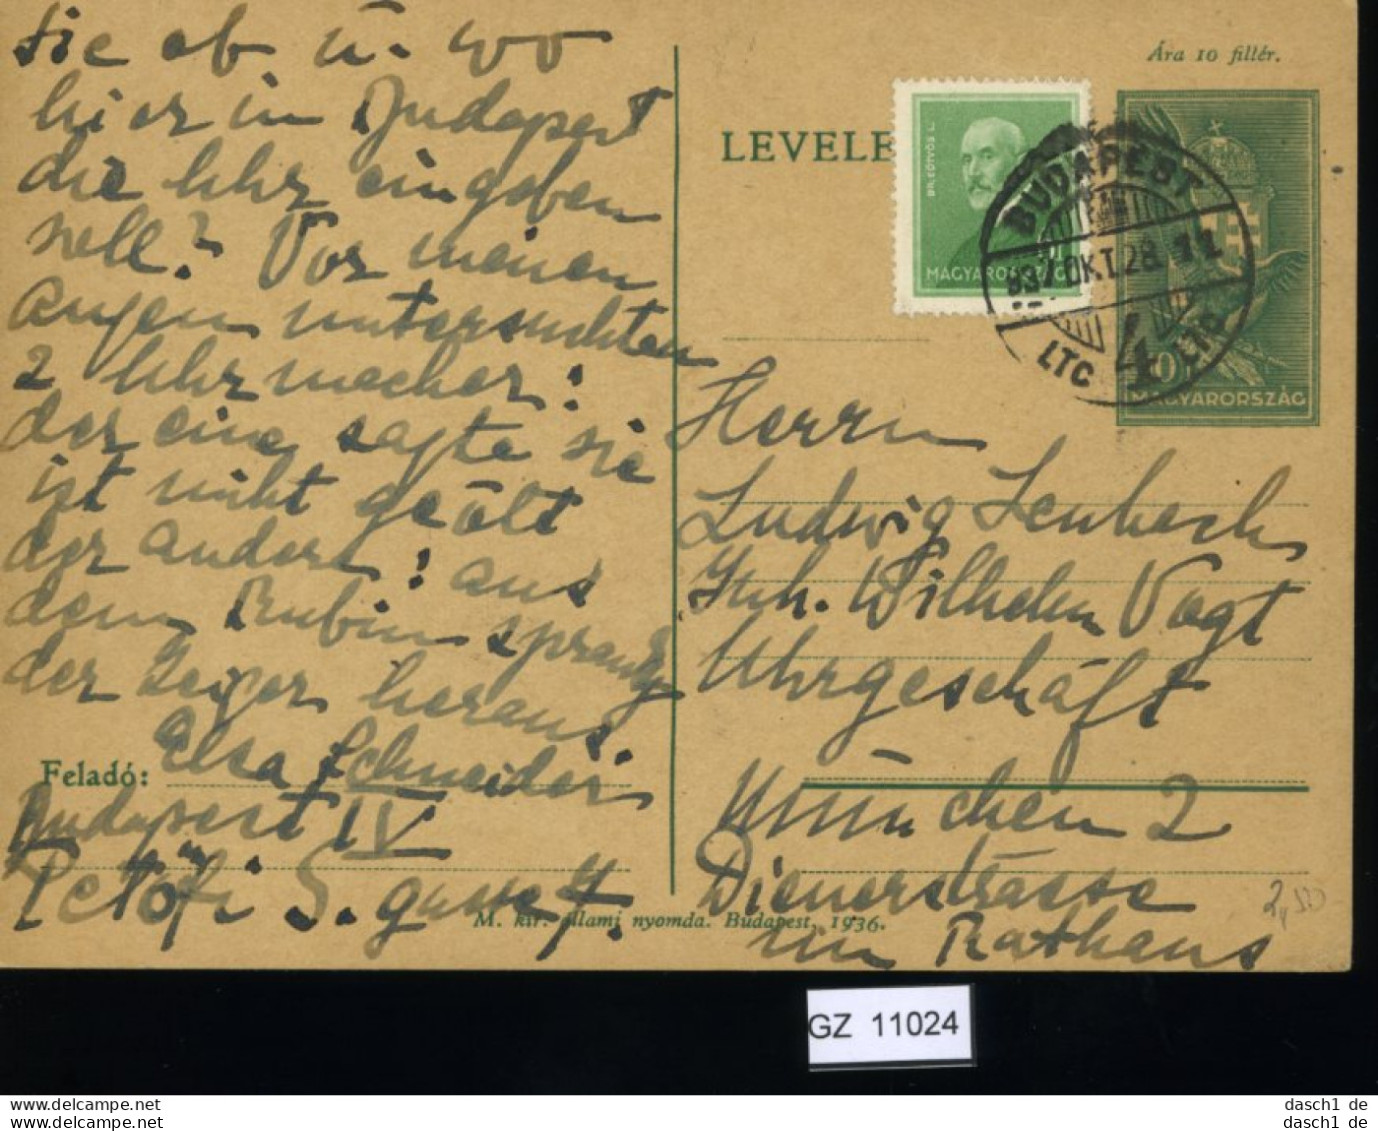 sie ob u. wo
hier in Budapest
die Uhr eingeben
soll? Vor meinen
Augen untersuchten
2 Uhrmacher:
der eine sagte sie
ist nicht geölt
der andere: aus
dem Rubin sprang
der Zeiger heraus.
Feladó: Elsa Schneider
Budapest IV
Petöfi S. gasse 7.
Ára 10 fillér.
LEVELE
BR. EÖTVÖS L.
MAGYARORSZÁG
BUDAPEST
937 OKT. 28. 11
LTC 4 LTC
10
MAGYARORSZÁG
Herrn
Ludwig Lenbach
Inh. Wilhelm Vogt
Uhrgeschäft
München 2
Dienerstrasse
im Rathaus
M. kir. állami nyomda. Budapest, 1936.
GZ 11024
www.delcampe.net
www.delcampe.net
dasch1 de
dasch1 de